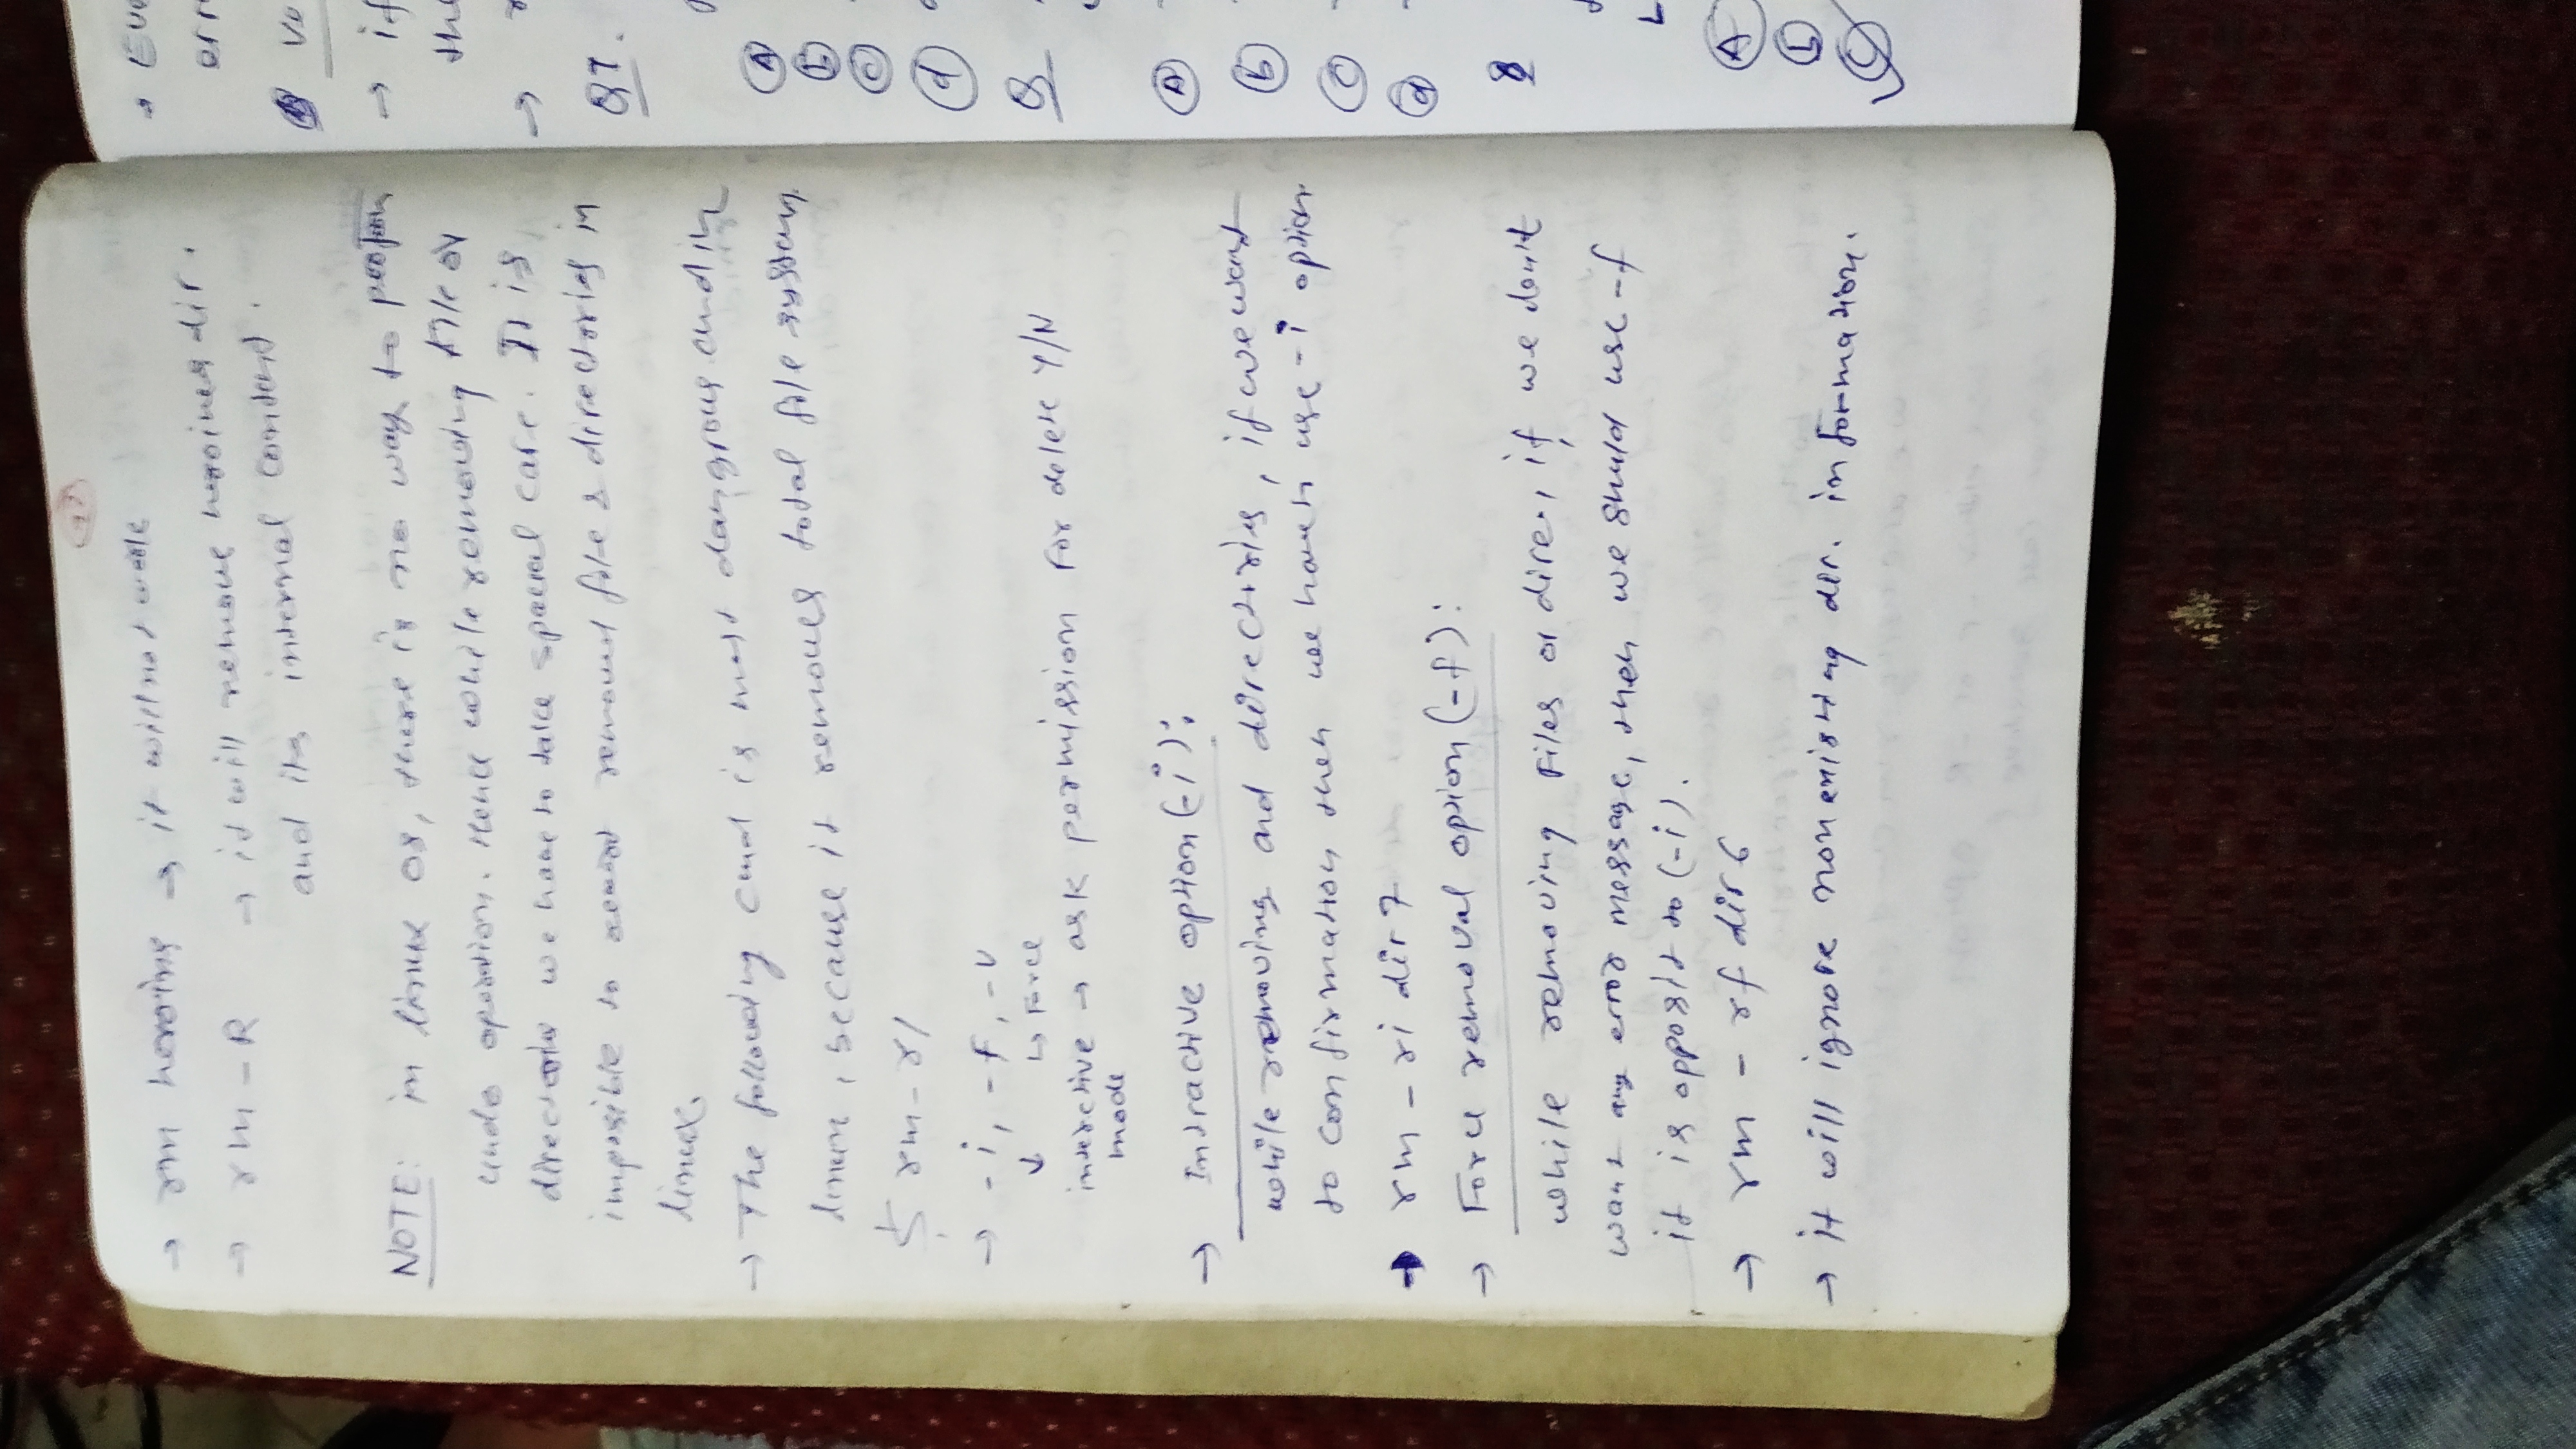 27
→ rm heroins → it will not work
→ rm -R → it will remove heroines dir.
and its internal content.
NOTE: in linux os, there is no way to perform
undo opeation. Hence while removing file or
directorie we have to take special care. It is
impossible to removed file & directories in
linux.
→ The following cmd is most dangrous cmd in
linux, because it removes total file system.
$ rm -r /
→ -i, -f, -v
↓ ↳ Force
interctive → ask permission For delete Y/N
mode
→ Intractive option (-i):
while removing and directries, if we want
to confirmation then we have to use -i option
→ rm -ri dir7
→ Force removal option (-f):
while removing Files or dire., if we don't
want any error message, then we should use -f
it is opposit to (-i).
→ rm -rf dir6
→ it will ignore non existing dir. information.
→ Eve
err
ve
→ if
the
→ r
Q7.
A
b
c
d
Q
A
b
c
d
Q
A
b
c